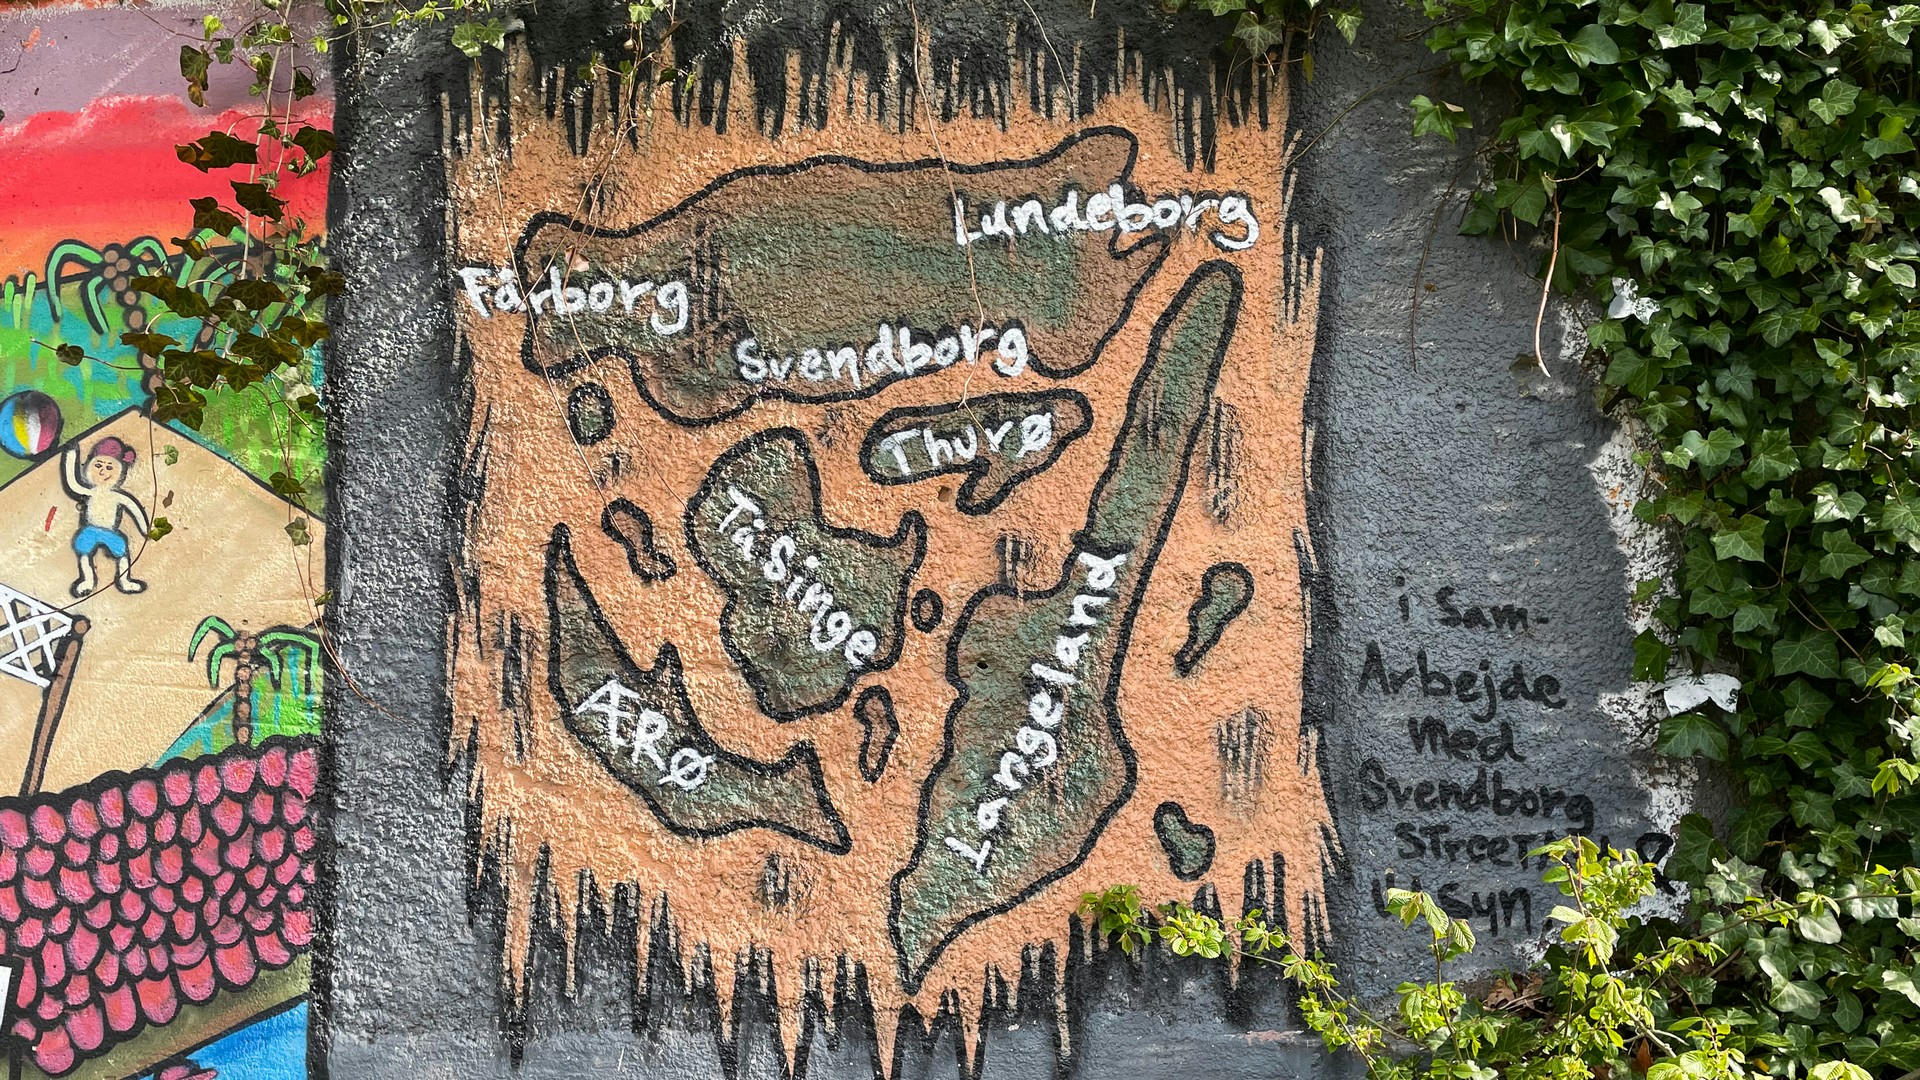 Lundeborg
Fåborg
Svendborg
Thurø
Tåsinge
Langeland
ÆRØ
i Sam-
Arbejde
med
Svendborg